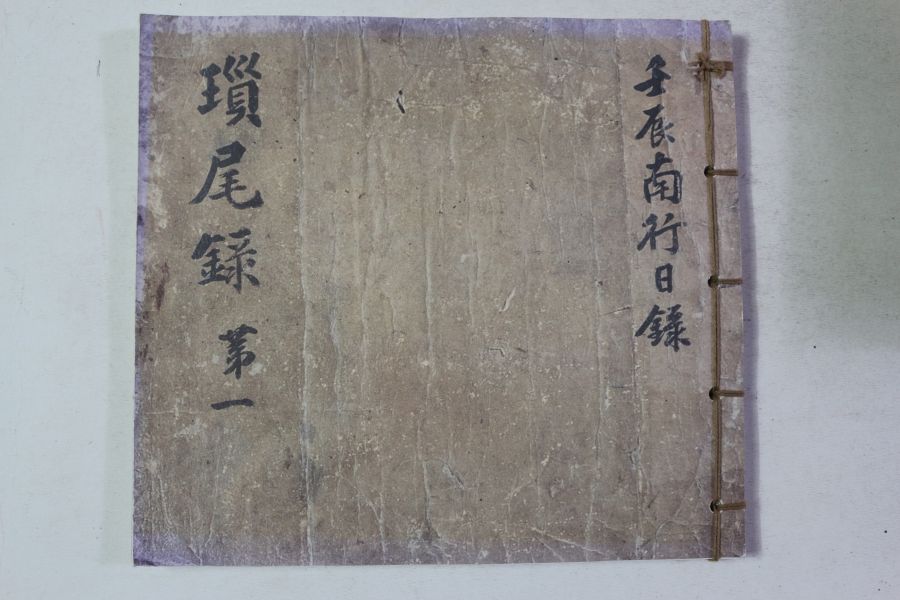 壬辰南行日錄
瑣尾錄 苐一